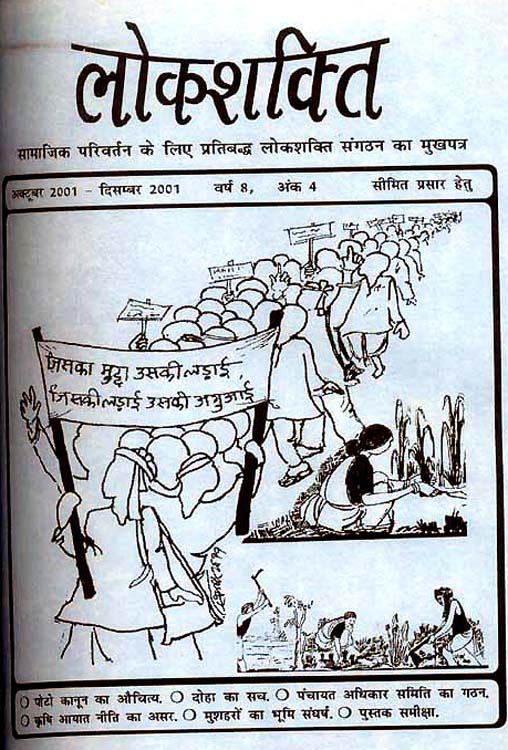 लोकशक्ति
सामाजिक परिवर्तन के लिए प्रतिबद्ध लोकशक्ति संगठन का मुखपत्र
अक्टूबर 2001 - दिसम्बर 2001 वर्ष 8, अंक 4 सीमित प्रसार हेतु
जिसका मुद्दा उसकी लड़ाई,
जिसकी लड़ाई उसकी अगुआई
○ पोटो कानून का औचित्य. ○ दोहा का सच. ○ पंचायत अधिकार समिति का गठन.
○ कृषि आयात नीति का असर. ○ मुशहरों का भूमि संघर्ष. ○ पुस्तक समीक्षा.